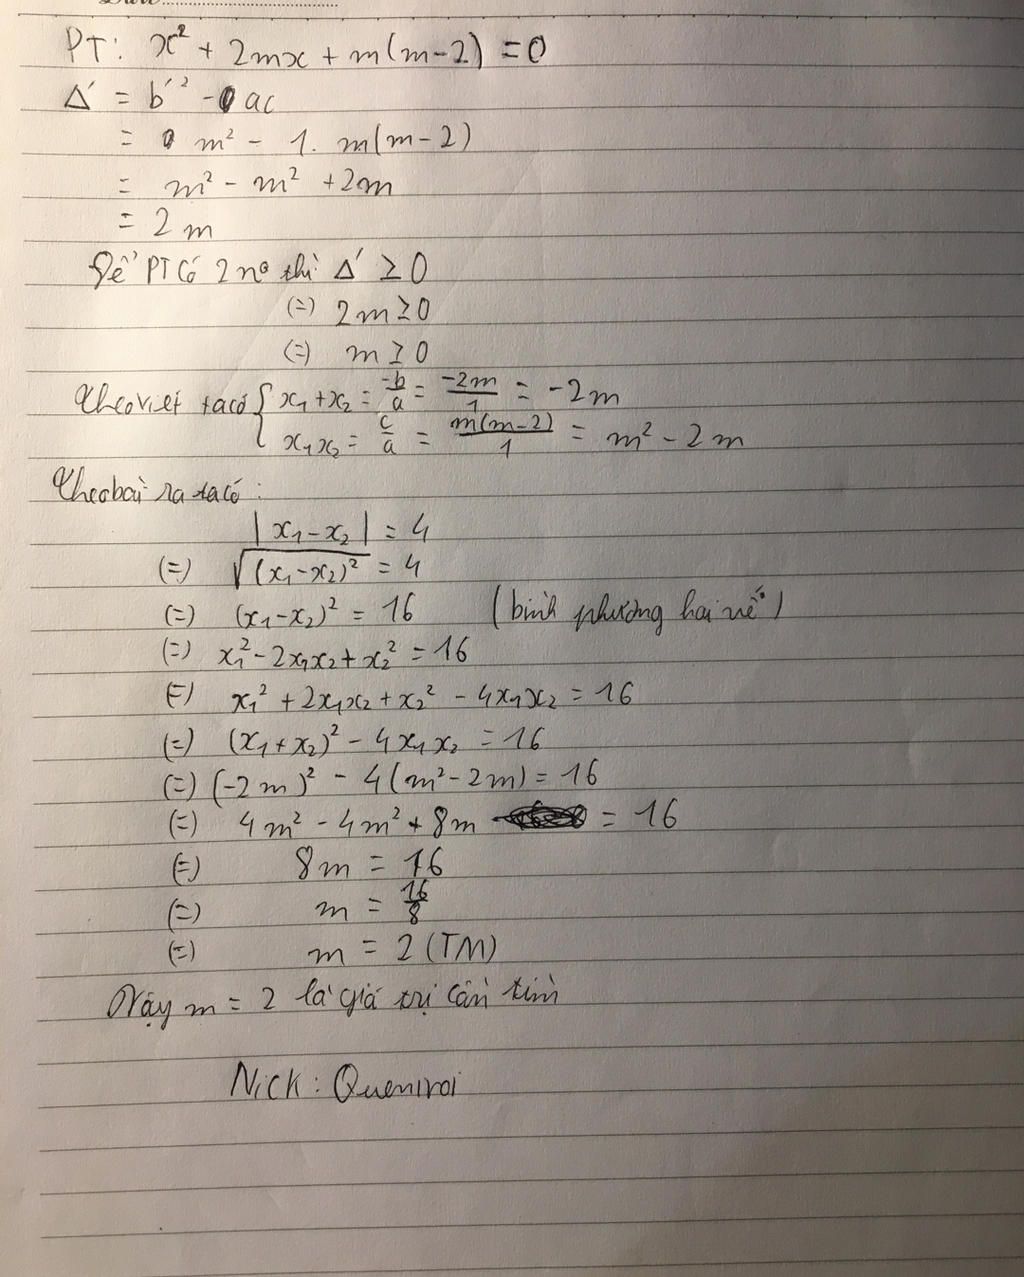 PT: x² + 2mx + m(m-2) = 0
Δ' = b'² - ac
= m² - 1. m(m-2)
= m² - m² + 2m
= 2m
Để PT có 2 no thì Δ' ≥ 0
(=) 2m ≥ 0
(=) m ≥ 0
Theo viet ta có { x₁ + x₂ = -b/a = -2m/1 = -2m
x₁x₂ = c/a = m(m-2)/1 = m² - 2m
Theo bài ra ta có :
|x₁ - x₂| = 4
(=) √(x₁-x₂)² = 4
(=) (x₁-x₂)² = 16 (bình phương hai vế)
(=) x₁² - 2x₁x₂ + x₂² = 16
(=) x₁² + 2x₁x₂ + x₂² - 4x₁x₂ = 16
(=) (x₁ + x₂)² - 4x₁x₂ = 16
(=) (-2m)² - 4(m² - 2m) = 16
(=) 4m² - 4m² + 8m = 16
(=) 8m = 16
(=) m = 16/8
(=) m = 2 (TM)
Vậy m = 2 là giá trị cần tìm
Nick : Queniroi